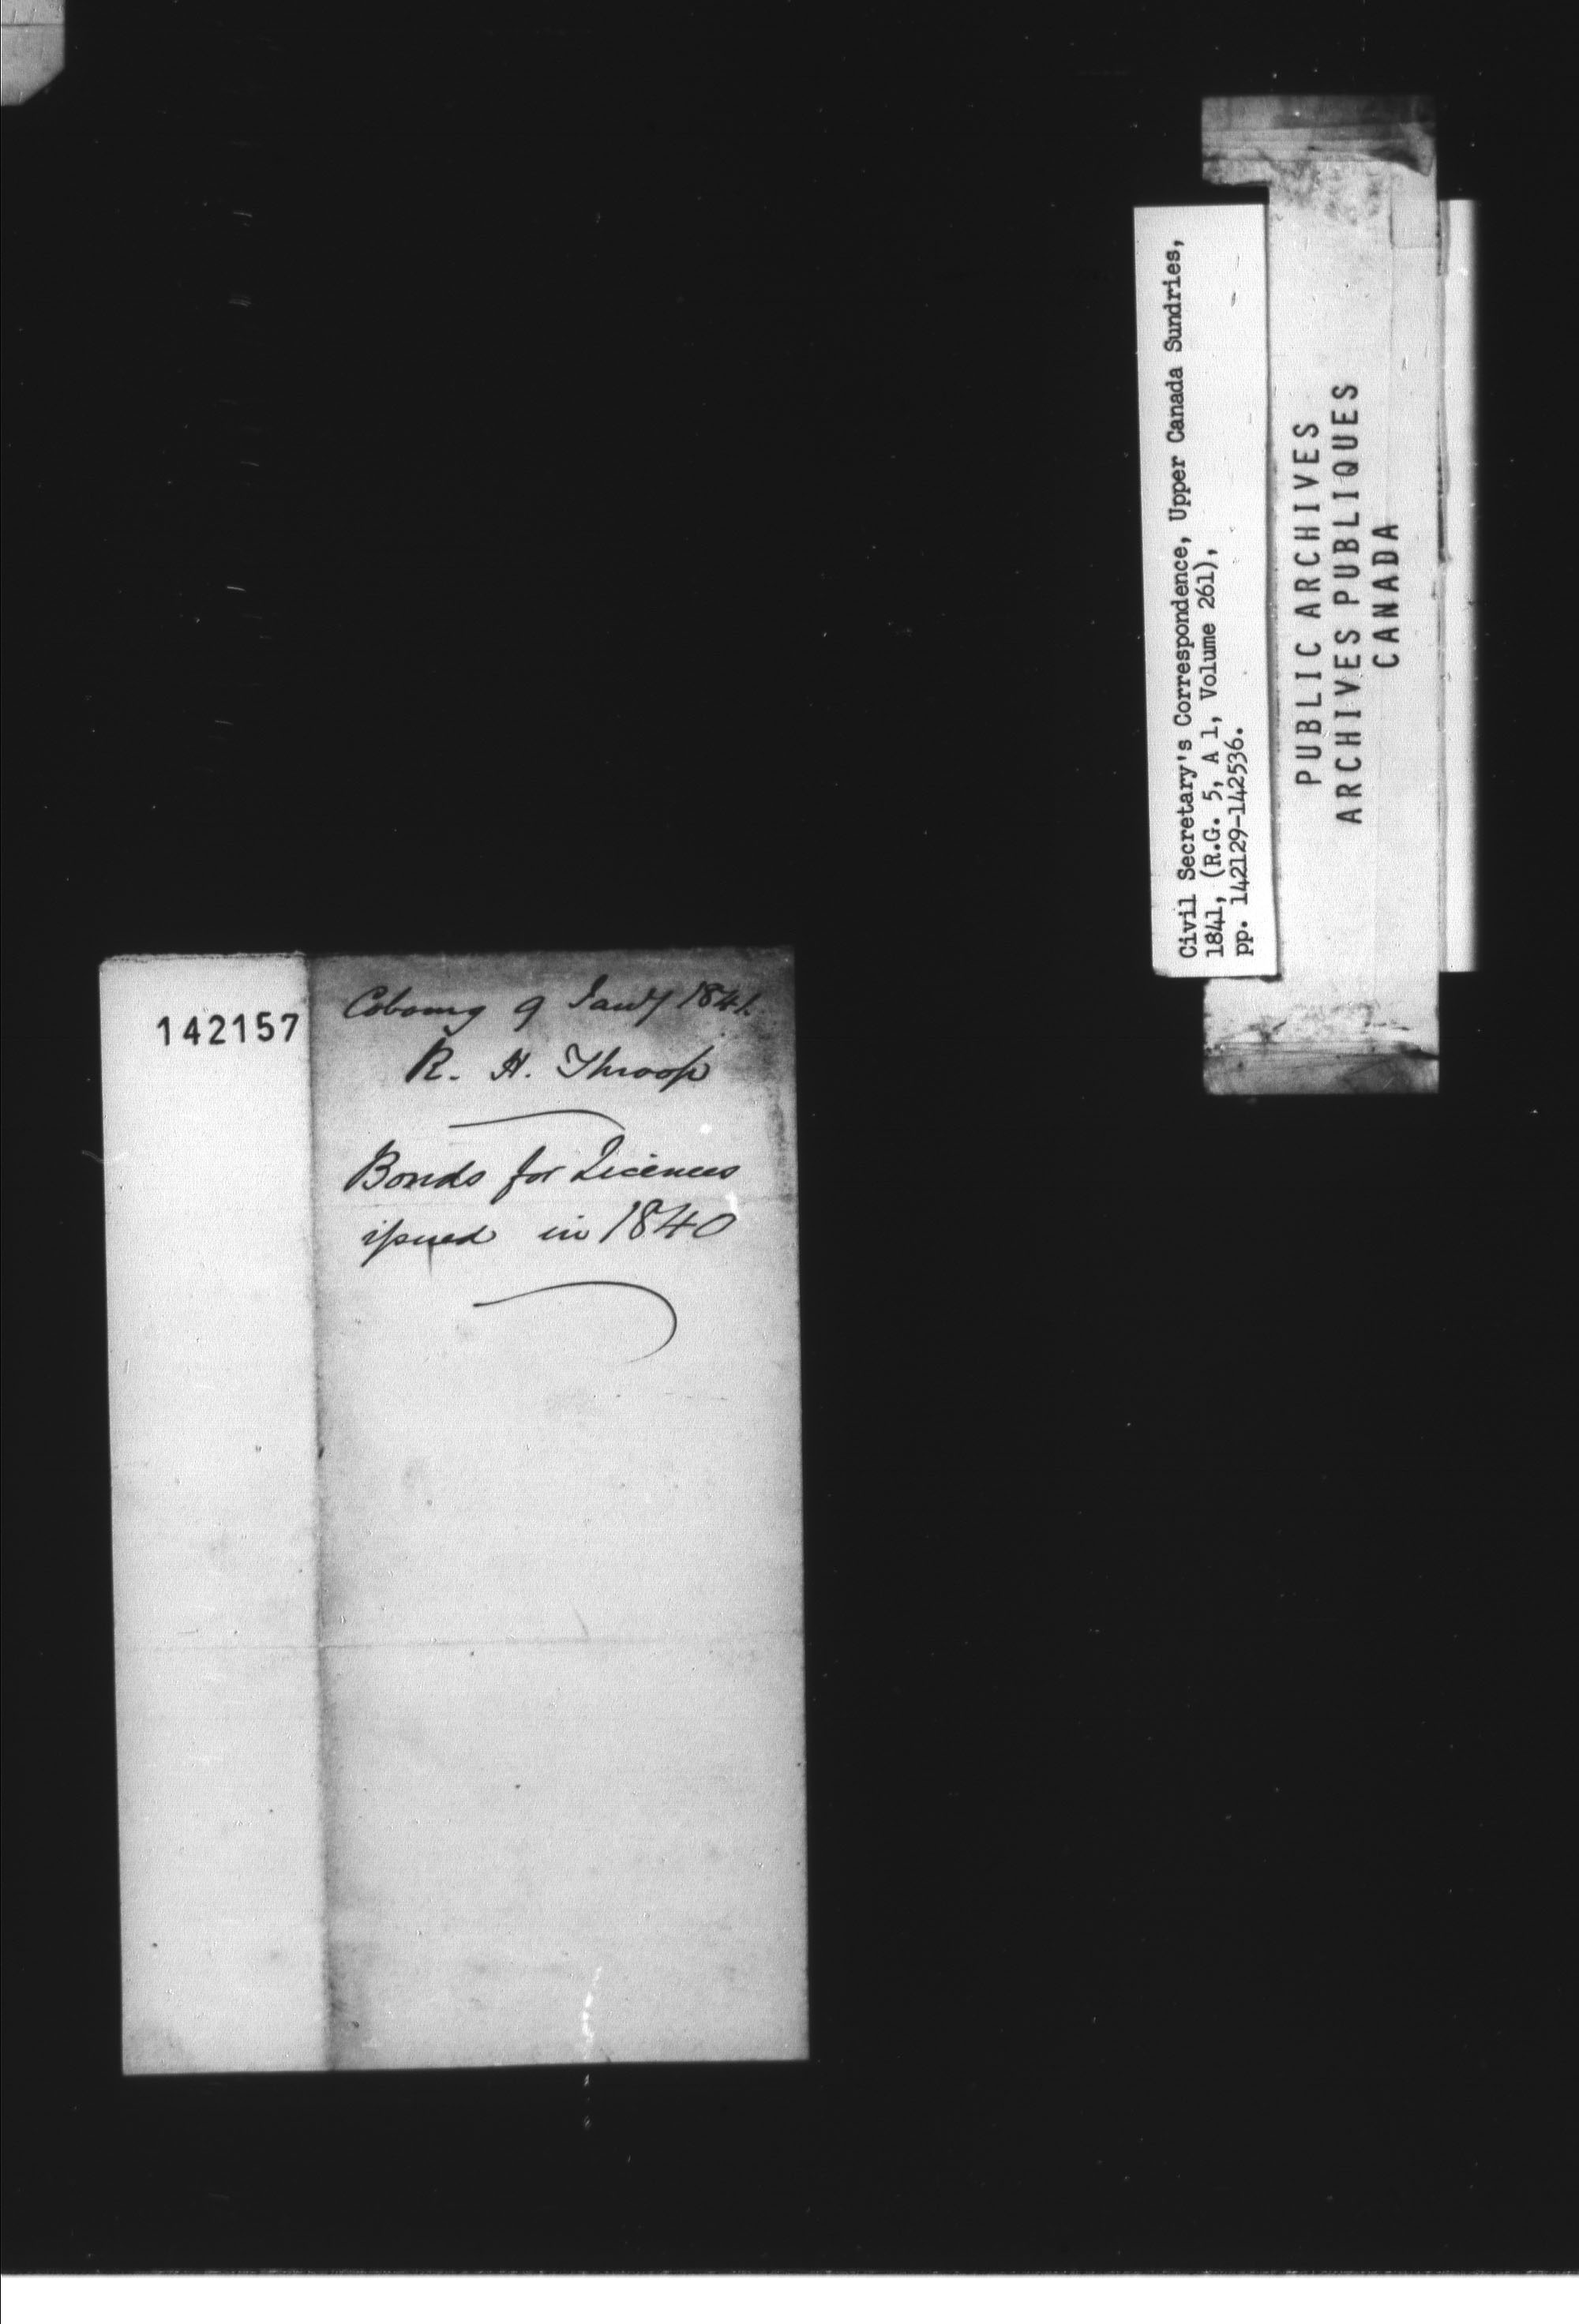 142157
Cobourg 9 Jany 1841.
R. H. Throop
Bonds for Licences
issued in 1840
Civil Secretary's Correspondence, Upper Canada Sundries,
1841, (R.G. 5, A 1, Volume 261),
pp. 142129-142536.
PUBLIC ARCHIVES
ARCHIVES PUBLIQUES
CANADA